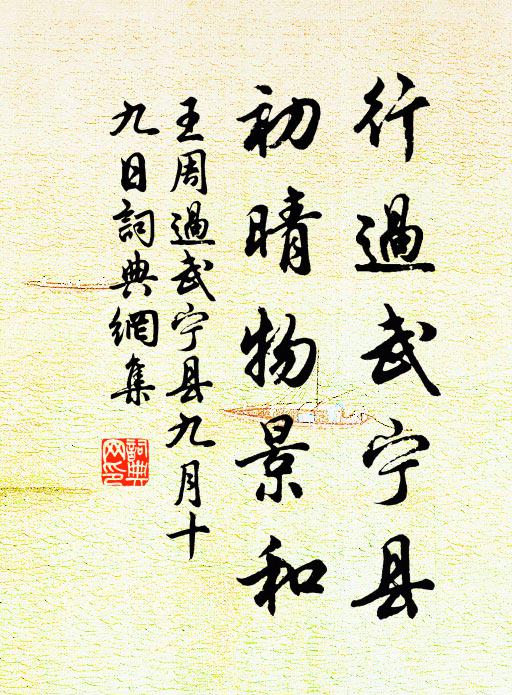 行過武宁县
初晴物景和
王周過武宁县九月十
九日詞典網集
詞典
网印